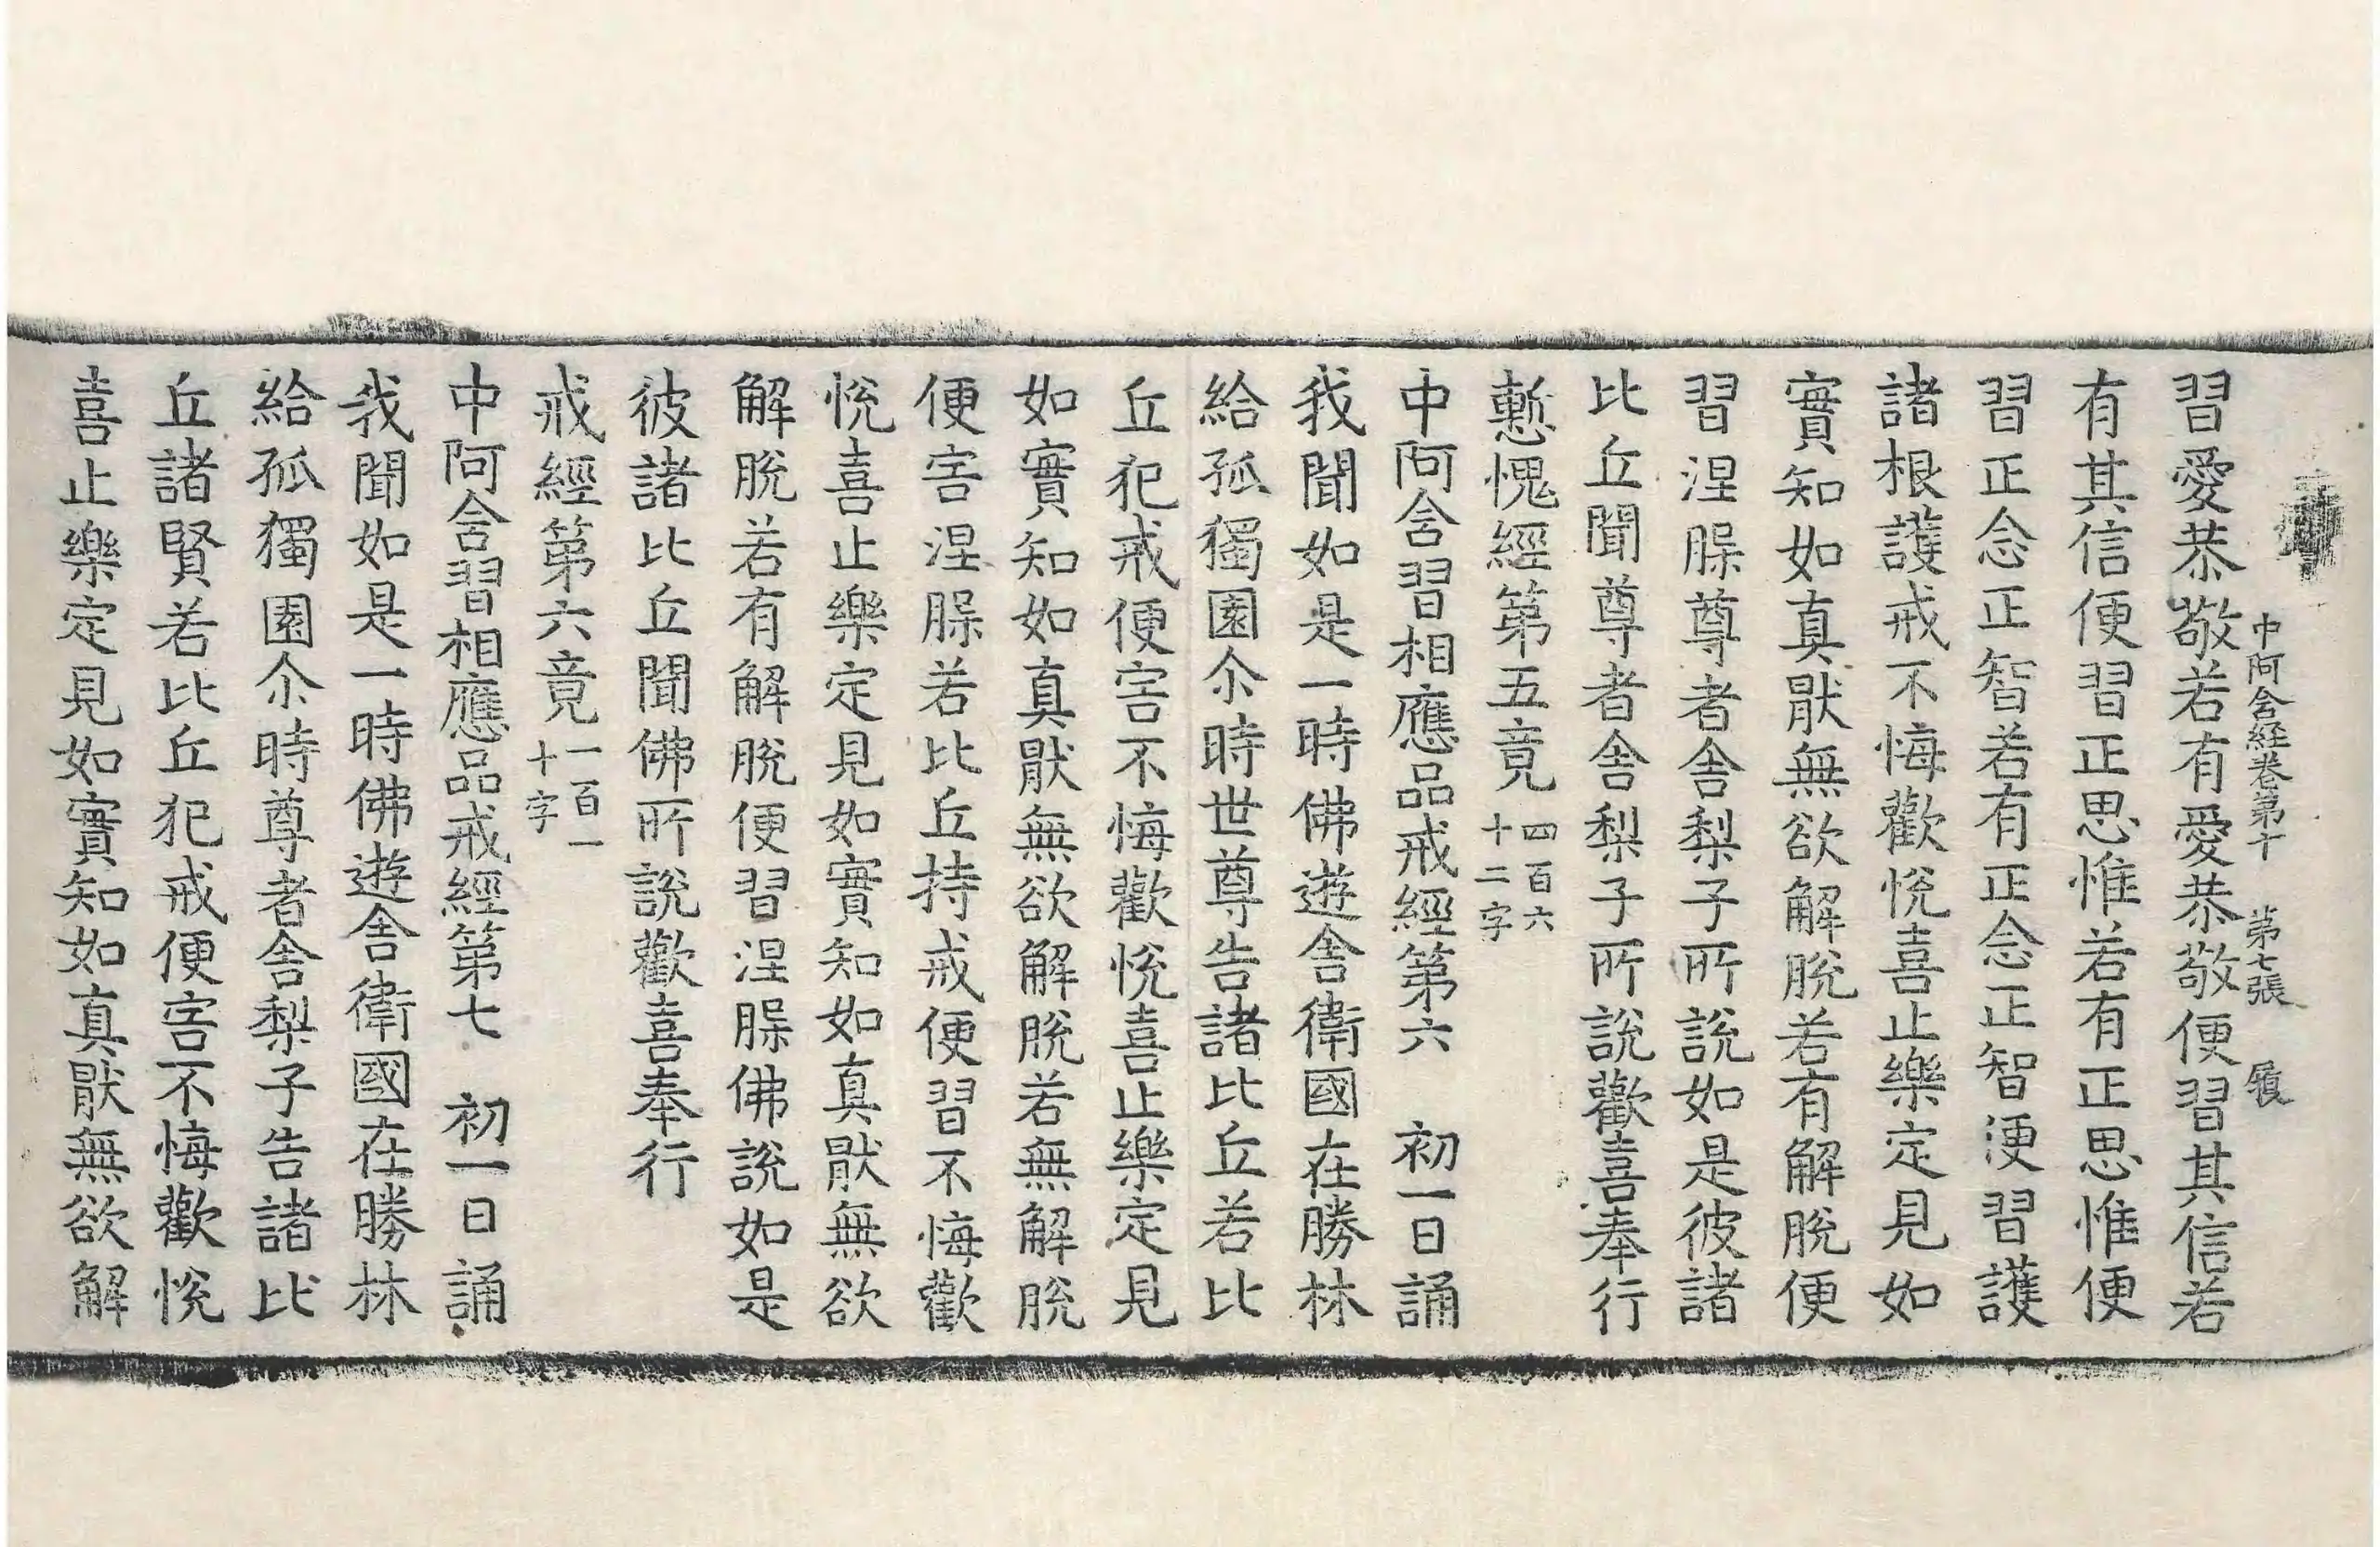 中阿含經卷第十　第七張　履
習愛恭敬若有愛恭敬便習其信若
有其信便習正思惟若有正思惟便
習正念正智若有正念正智便習護
諸根護戒不悔歡悅喜止樂定見如
實知如真猒無欲解脫若有解脫便
習涅槃尊者舍梨子所說如是彼諸
比丘聞尊者舍梨子所說歡喜奉行
慙愧經第五竟四百六十二字
中阿含習相應品戒經第六　初一日誦
我聞如是一時佛遊舍衛國在勝林
給孤獨園尒時世尊告諸比丘若比
丘犯戒便害不悔歡悅喜止樂定見
如實知如真猒無欲解脫若無解脫
便害涅槃若比丘持戒便習不悔歡
悅喜止樂定見如實知如真猒無欲
解脫若有解脫便習涅槃佛說如是
彼諸比丘聞佛所說歡喜奉行
戒經第六竟一百一十字
中阿含習相應品戒經第七　初一日誦
我聞如是一時佛遊舍衛國在勝林
給孤獨園尒時尊者舍梨子告諸比
丘諸賢若比丘犯戒便害不悔歡悅
喜止樂定見如實知如真猒無欲解